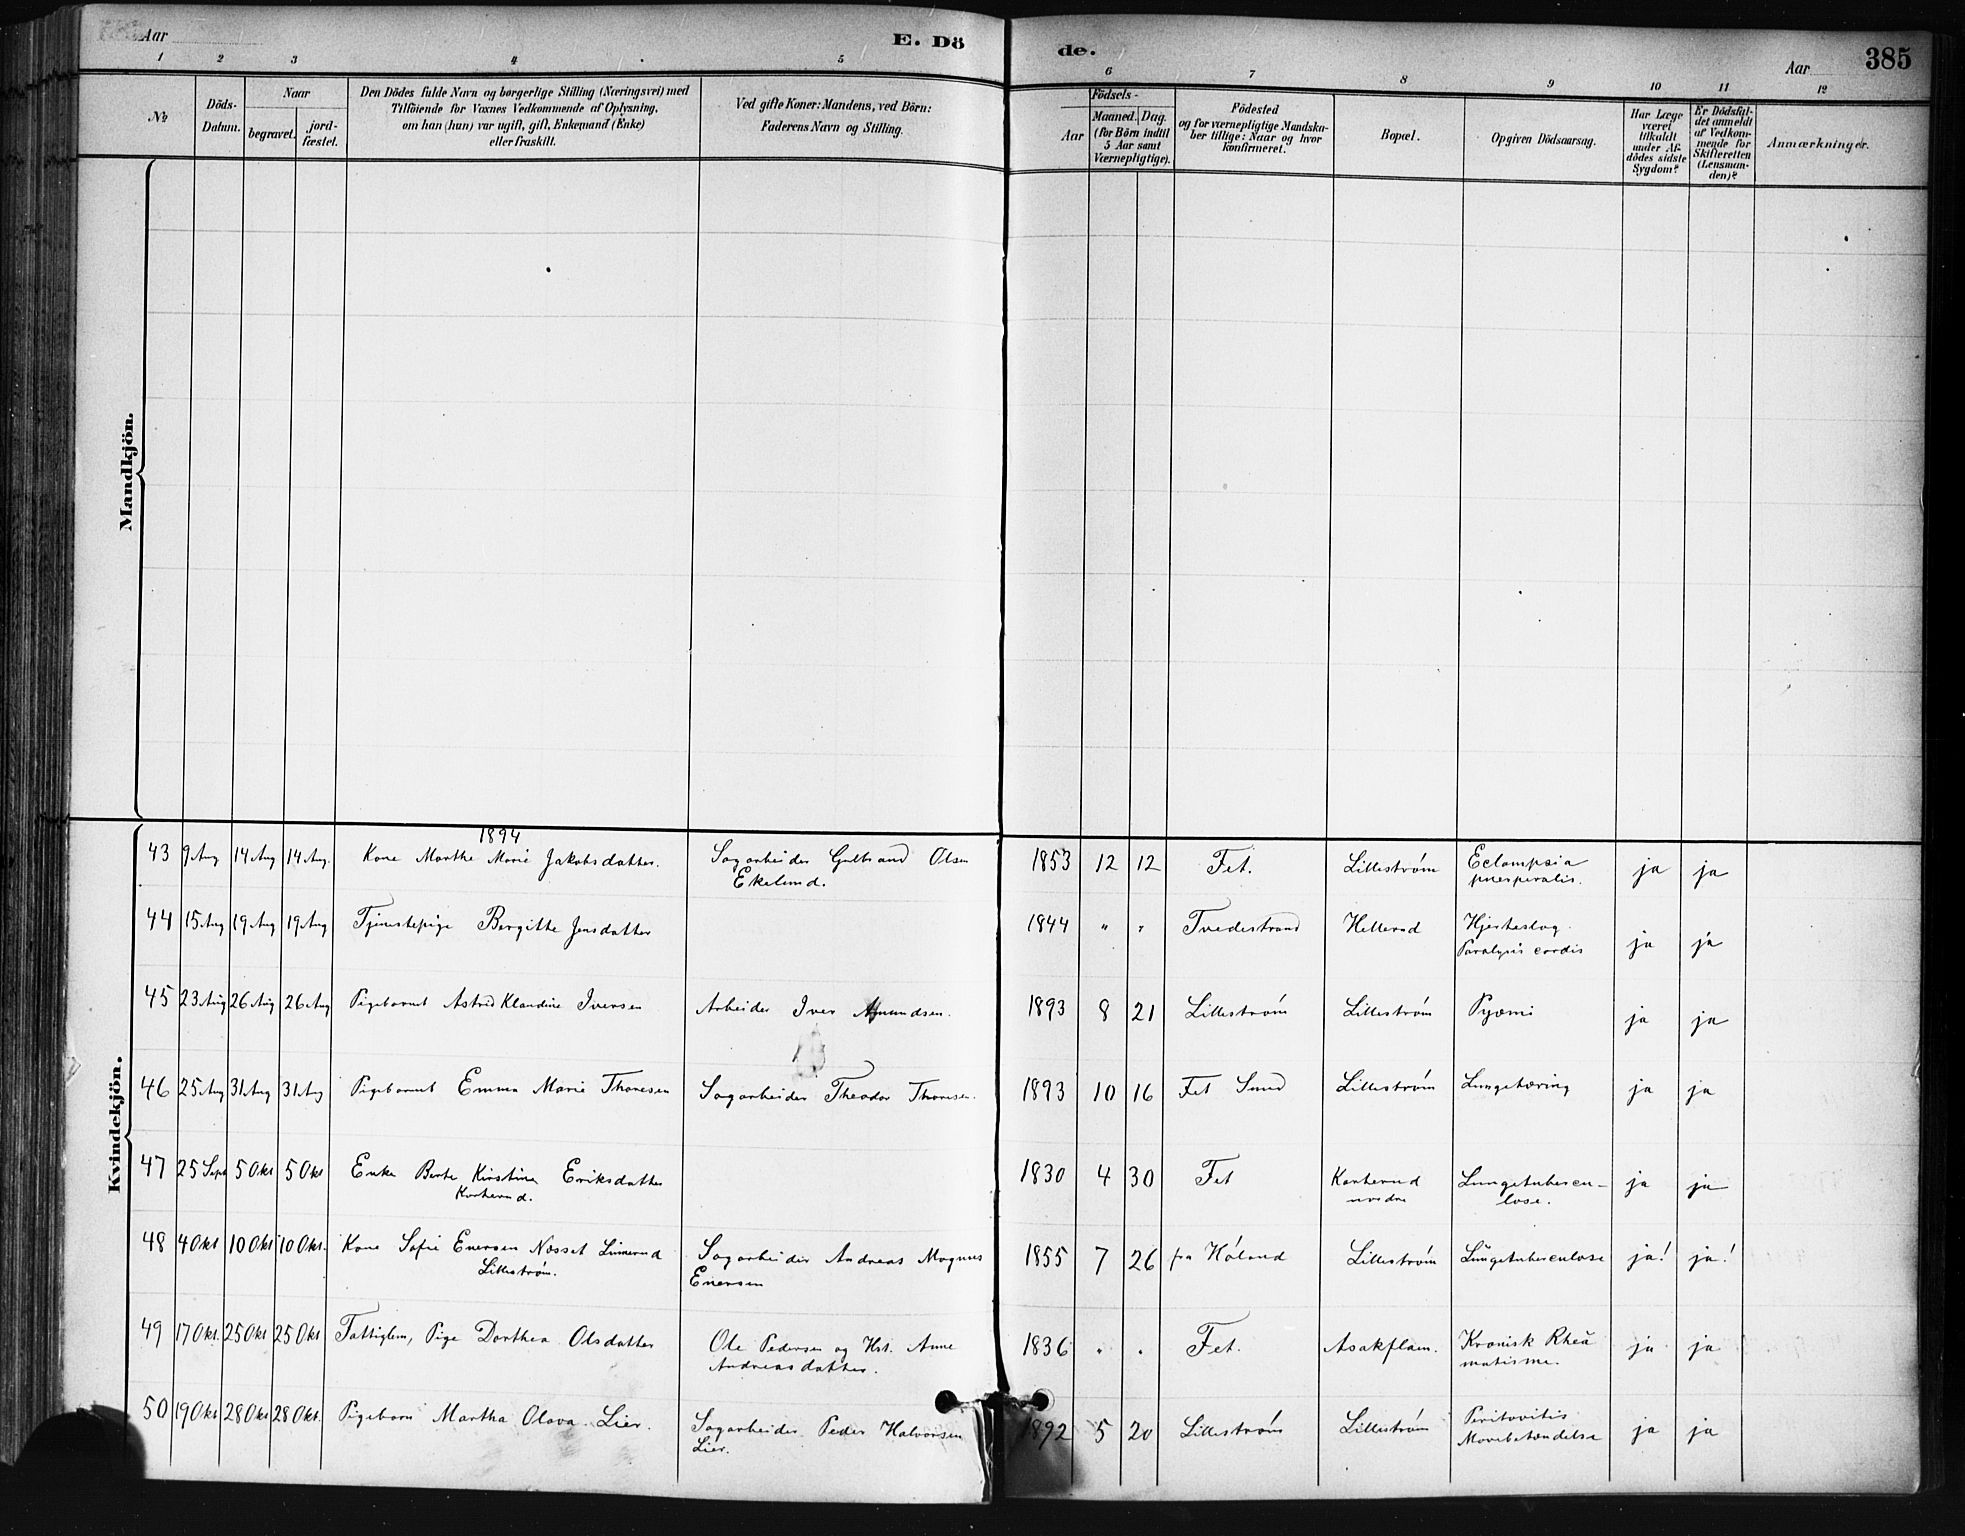 Aar
E. Dö
de.
Aar
385
1 2 3 4 5
6 7 8 9 10 11 12
№
Döds-
Datum.
Naar
begravet.
jord-
fæstet.
Den Dödes fulde Navn og borgerlige Stilling (Næringsvei) med
Tilföiende for Voxnes Vedkommende af Oplysning,
om han (hun) var ugift, gift, Enkemand (Enke)
eller fraskilt.
Ved gifte Koner: Mandens, ved Börn:
Faderens Navn og Stilling.
Födsels-
Aar
Maaned. Dag.
(for Börn indtil
5 Aar samt
Værnepligtige).
Födested
og for værnepligtige Mandska-
ber tillige: Naar og hvor
konfirmeret.
Bopæl.
Opgiven Dödsaarsag.
Har Læge
været
tilkaldt
under Af-
dödes sidste
Sygdom?
Er Dödsfal-
det anmeldt
af Vedkom-
mende for
Skifteretten
(Lensman-
den)?
Anmærkninger.
Mandkjön.
Kvindekjön.
1894
43 9 Aug 14 Aug 14 Aug. Kone Marthe Marie Jakobsdatter. Sagarbeider Gulbrand Olsen
Ekelund.
1853 12 12 Fet. Lillestrøm Eclampsia
puerperalis. ja ja
44 15 Aug 19 Aug 19 Aug Tjenestepige Bergitte Jensdatter
1844 " " Tvedestrand Hellerud Hjerteslag.
Paralysis cordis ja ja
45 23 Aug 26 Aug 26 Aug Pigebarnet Astrid Klaudine Iversen Arbeider Iver Amundsen.
1893 8 21 Lillestrøm Lillestrøm Pyæmi ja ja
46 25 Aug 31 Aug 31 Aug Pigebarnet Emma Marie Thoresen Sagarbeider Theodor Thoresen.
1893 10 16 Fet Sund Lillestrøm Lungetæring ja ja
47 25 Sept 5 Okt 5 Okt Enke Berte Kirstine Eriksdatter
Karterud.
1830 4 30 Fet Karterud
nordre Lungetubercu-
lose. ja ja
48 4 Okt 10 Okt 10 Okt. Kone Sofie Enersen Næsset Linnerud
Lillestrøm. Sagarbeider Andreas Magnus
Enersen
1855 7 26 fra Høland Lillestrøm Lungetuberculose ja! ja!
49 17 Okt. 25 Okt 25 Okt Fattiglem, Pige Dorthea Olsdatter Ole Pedersen og Hst. Anne
Andreasdatter.
1836 " " Fet. Asakflam. Kronisk Rheu
matisme. ja ja
50 19 Okt 28 Okt 28 Okt. Pigebarn Martha Olava Lier. Sagarbeider Peder Halvorsen
Lier.
1892 5 20 Lillestrøm Lillestrøm Peritovitis
Mavebetændelse ja ja